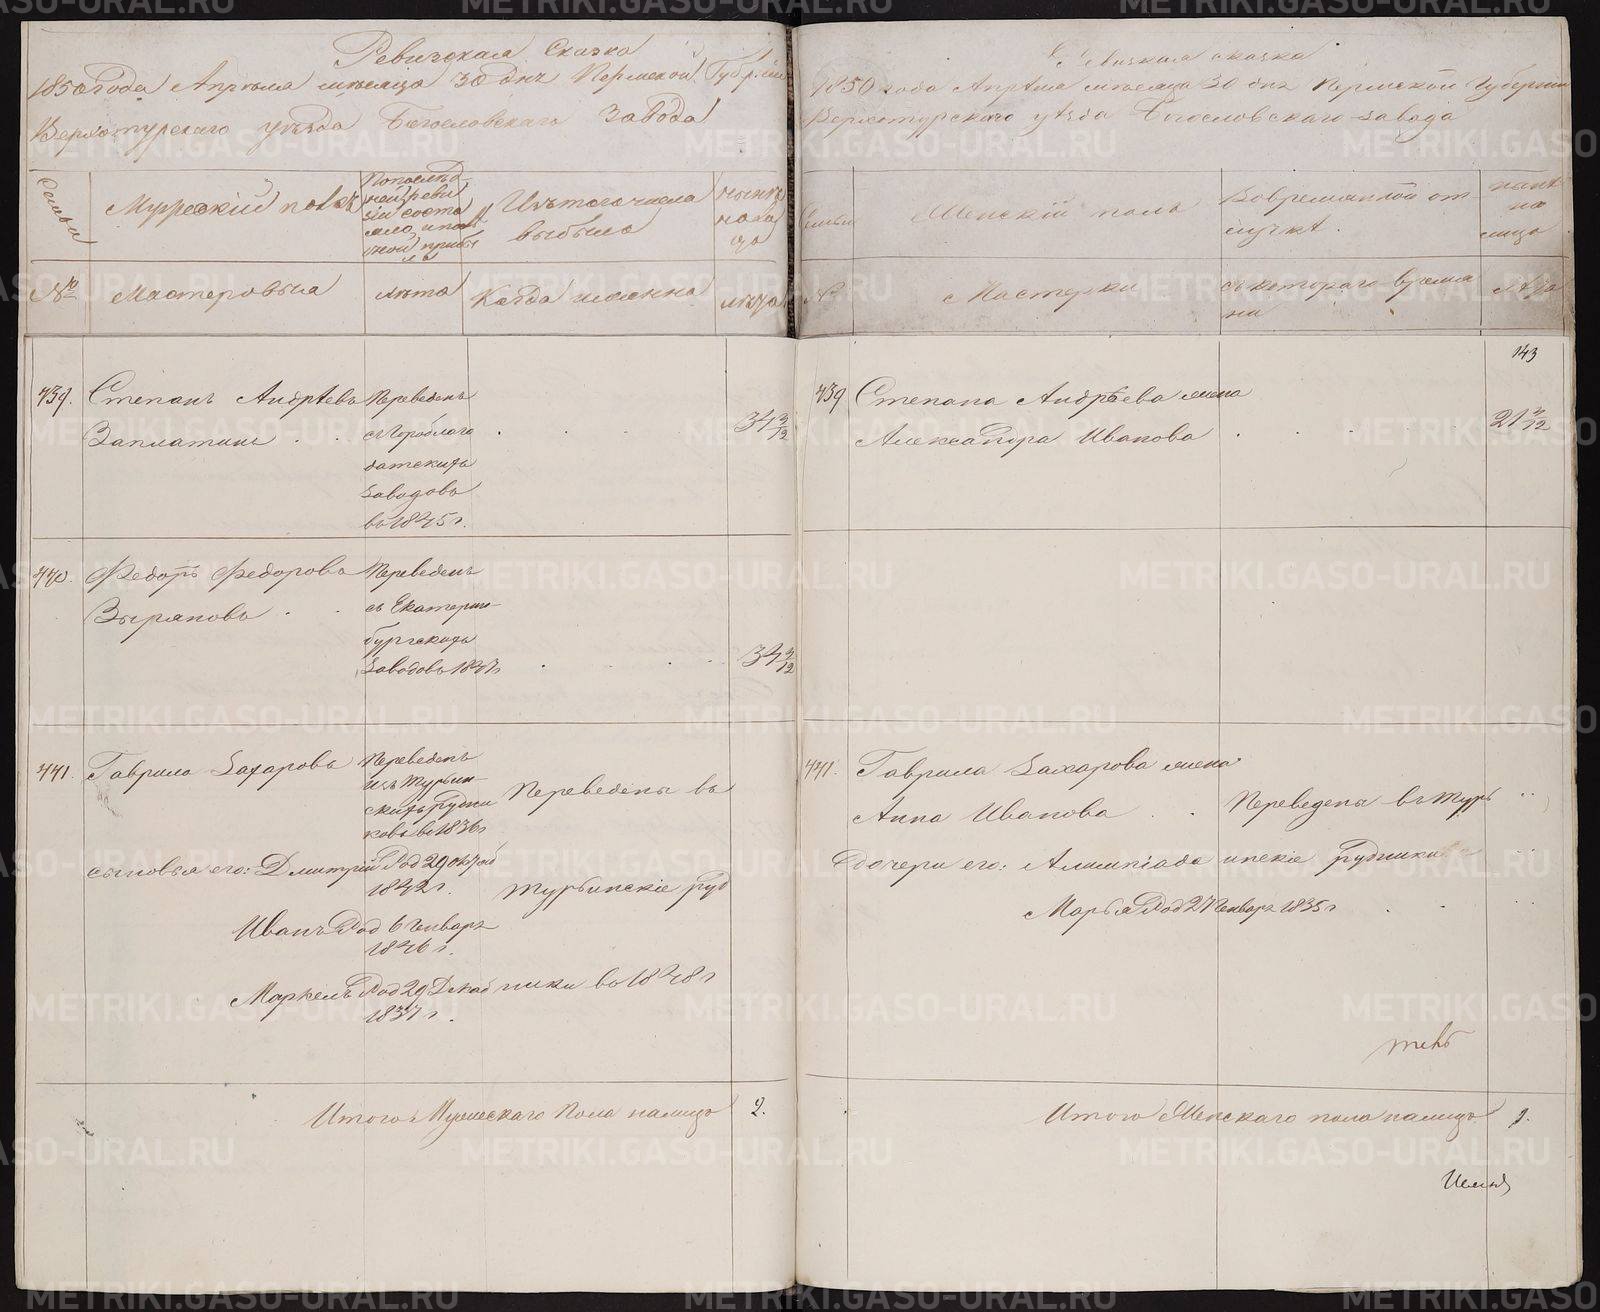 Ревизская Сказка
1850 года Апреля месяца 30 дня Пермской Губернии
Верхотурскаго уезда Богословскаго завода
Семьи
Мужеский полъ
По последней ревизии состояло и после оной прибыло
Изъ того числа выбыло
ныне на лицо
№
Мастеровыя
лета
Когда именно
лета
439.
Степанъ Андреевъ
Заплатинъ
Переведенъ
съ Гороблаго
датскихъ
заводовъ
въ 1845 г.
34 3/12
440.
Федоръ Федоровъ
Зыряновъ
Переведенъ
съ Екатерин-
бургскихъ
заводовъ 1847 г
34 3/12
441.
Гаврила Захаровъ
Переведенъ
изъ Турьин-
скихъ Рудни
ковъ въ 1836 г
Переведены въ
сыновья его: Дмитрий Род 29 октяб
1842 г.
Турьинские руд
Иванъ Род 6 Генваря
1846 г.
Маркелъ Род 29 Декаб
1837 г.
ники въ 1848 г
Итого Мужескаго Пола налицо
2.
сказка
1850 года Апреля месяца 30 дня Пермской Губернии
Верхотурскаго уезда Богословскаго завода
Семьи
Женский полъ
Во временной от-
лучке.
ныне
на
лицо
№
Мастерки
съ котораго време
ни
лета
143
439
Степана Андреева жена
Александра Иванова
21 3/12
441.
Гаврила Захарова жена
Анна Иванова
Переведены въ Турь
Дочери его: Алимпиада
инские рудники
Марья Род 27 Генваря 1835 г
Итого Женскаго пола налицо
1.